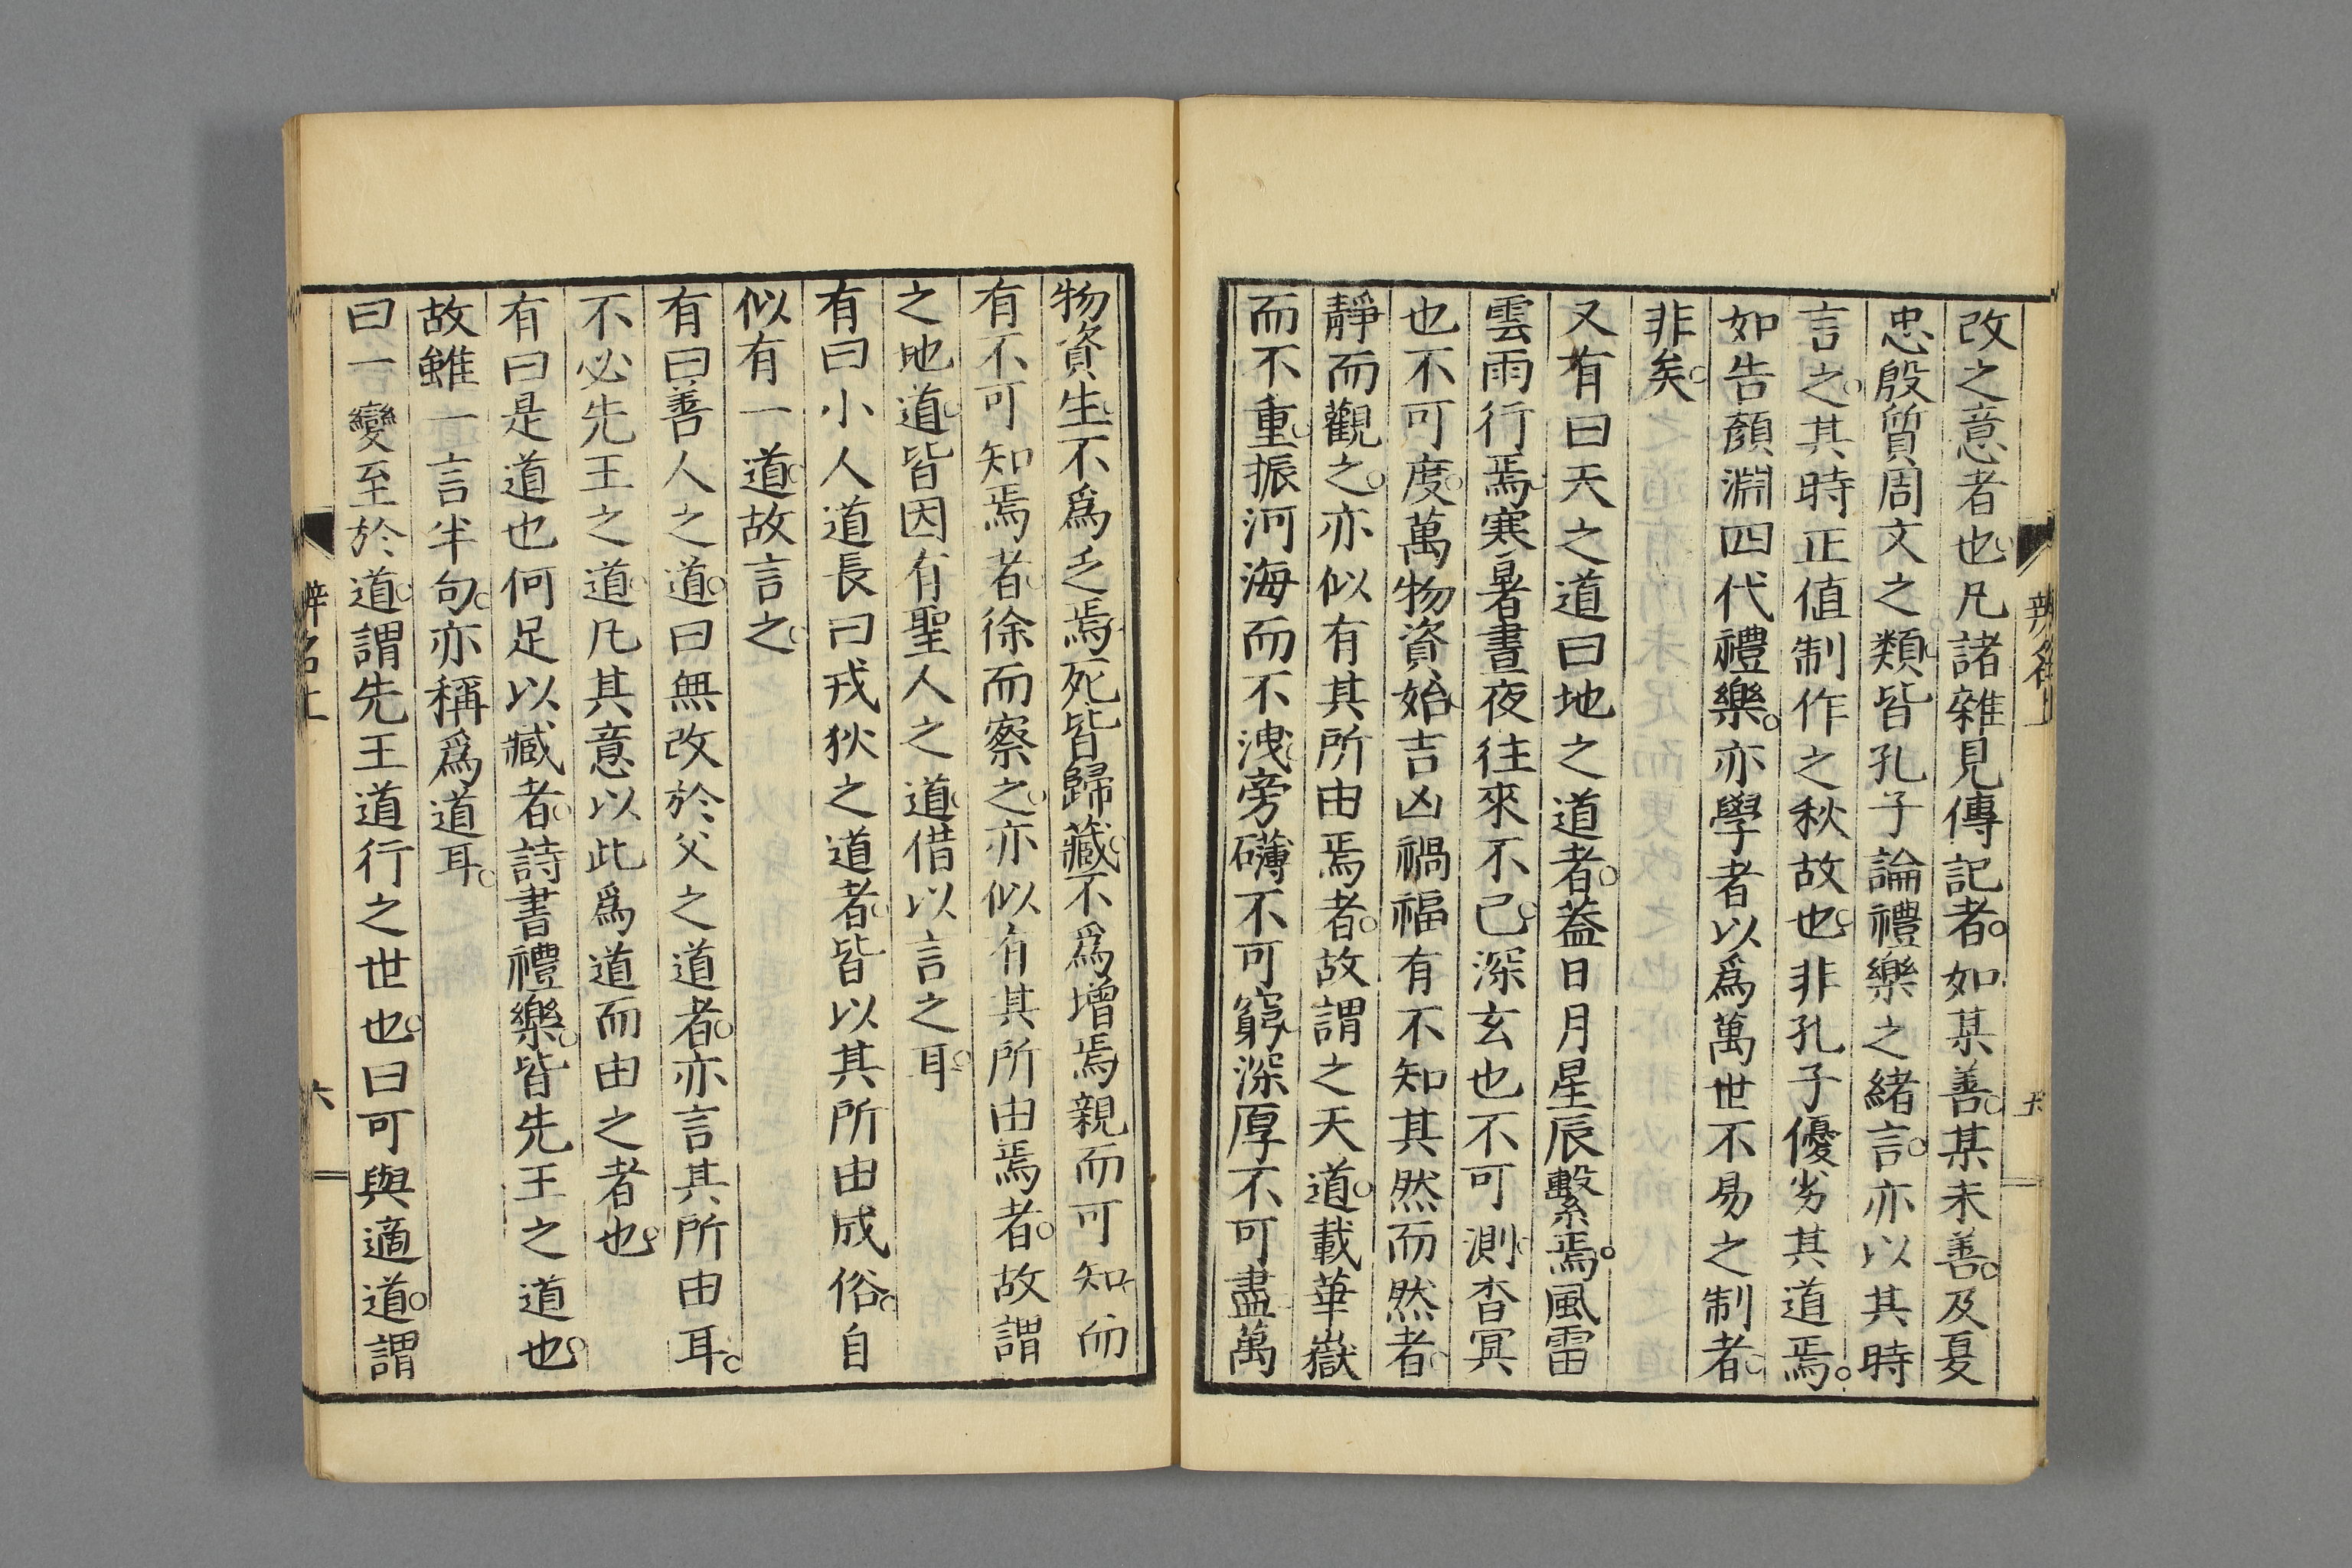 改之意者也。凡諸雜見傳記者。如某善。某未善。及夏
忠殷質周文之類。皆孔子論禮樂之緒言。亦以其時
言之。其時正值制作之秋故也。非孔子優劣其道焉。
如告顏淵四代禮樂。亦學者以爲萬世不易之制者。
非矣。
又有曰天之道曰地之道者。蓋日月星辰繫焉。風雷
雲雨行焉。寒暑晝夜往來不已。深玄也不可測。杳冥
也不可度。萬物資始。吉凶禍福有不知其然而然者。
靜而觀之。亦似有其所由焉者。故謂之天道。載華嶽
而不重。振河海而不洩。旁礴不可窮。深厚不可盡。萬
物資生。不爲乏焉。死皆歸藏。不爲增焉。親而可知。而
有不可知焉者。徐而察之。亦似有其所由焉者。故謂
之地道。皆因有聖人之道。借以言之耳。
有曰小人道長曰戎狄之道者。皆以其所由成俗。自
似有一道。故言之。
有曰善人之道。曰無改於父之道者。亦言其所由耳。
不必先王之道。凡其意以此爲道而由之者也。
有曰是道也何足以臧者。詩書禮樂。皆先王之道也。
故雖一言半句。亦稱爲道耳。
曰一變至於道。謂先王道行之世也。曰可與適道。謂
辨名上
六